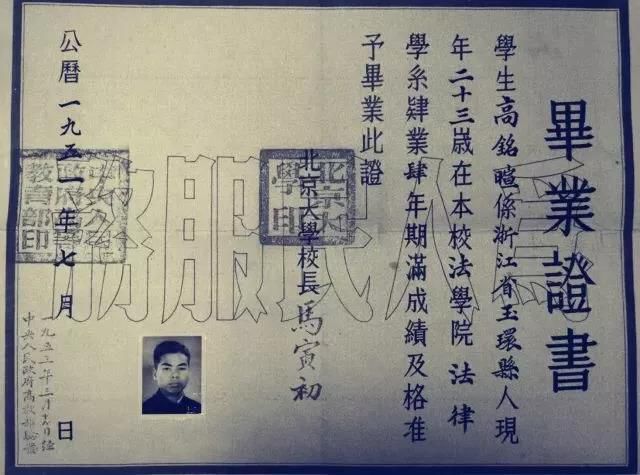 畢業證書
學生高銘暄係浙江省玉環縣人現
年二十三歲在本校法學院法律
學系肄業肆年期滿成績及格准
予畢業此證
北京大學校長馬寅初
公曆一九五一年七月 日
為人民服務
北京大學印
教育部印
中央人民政府高教部